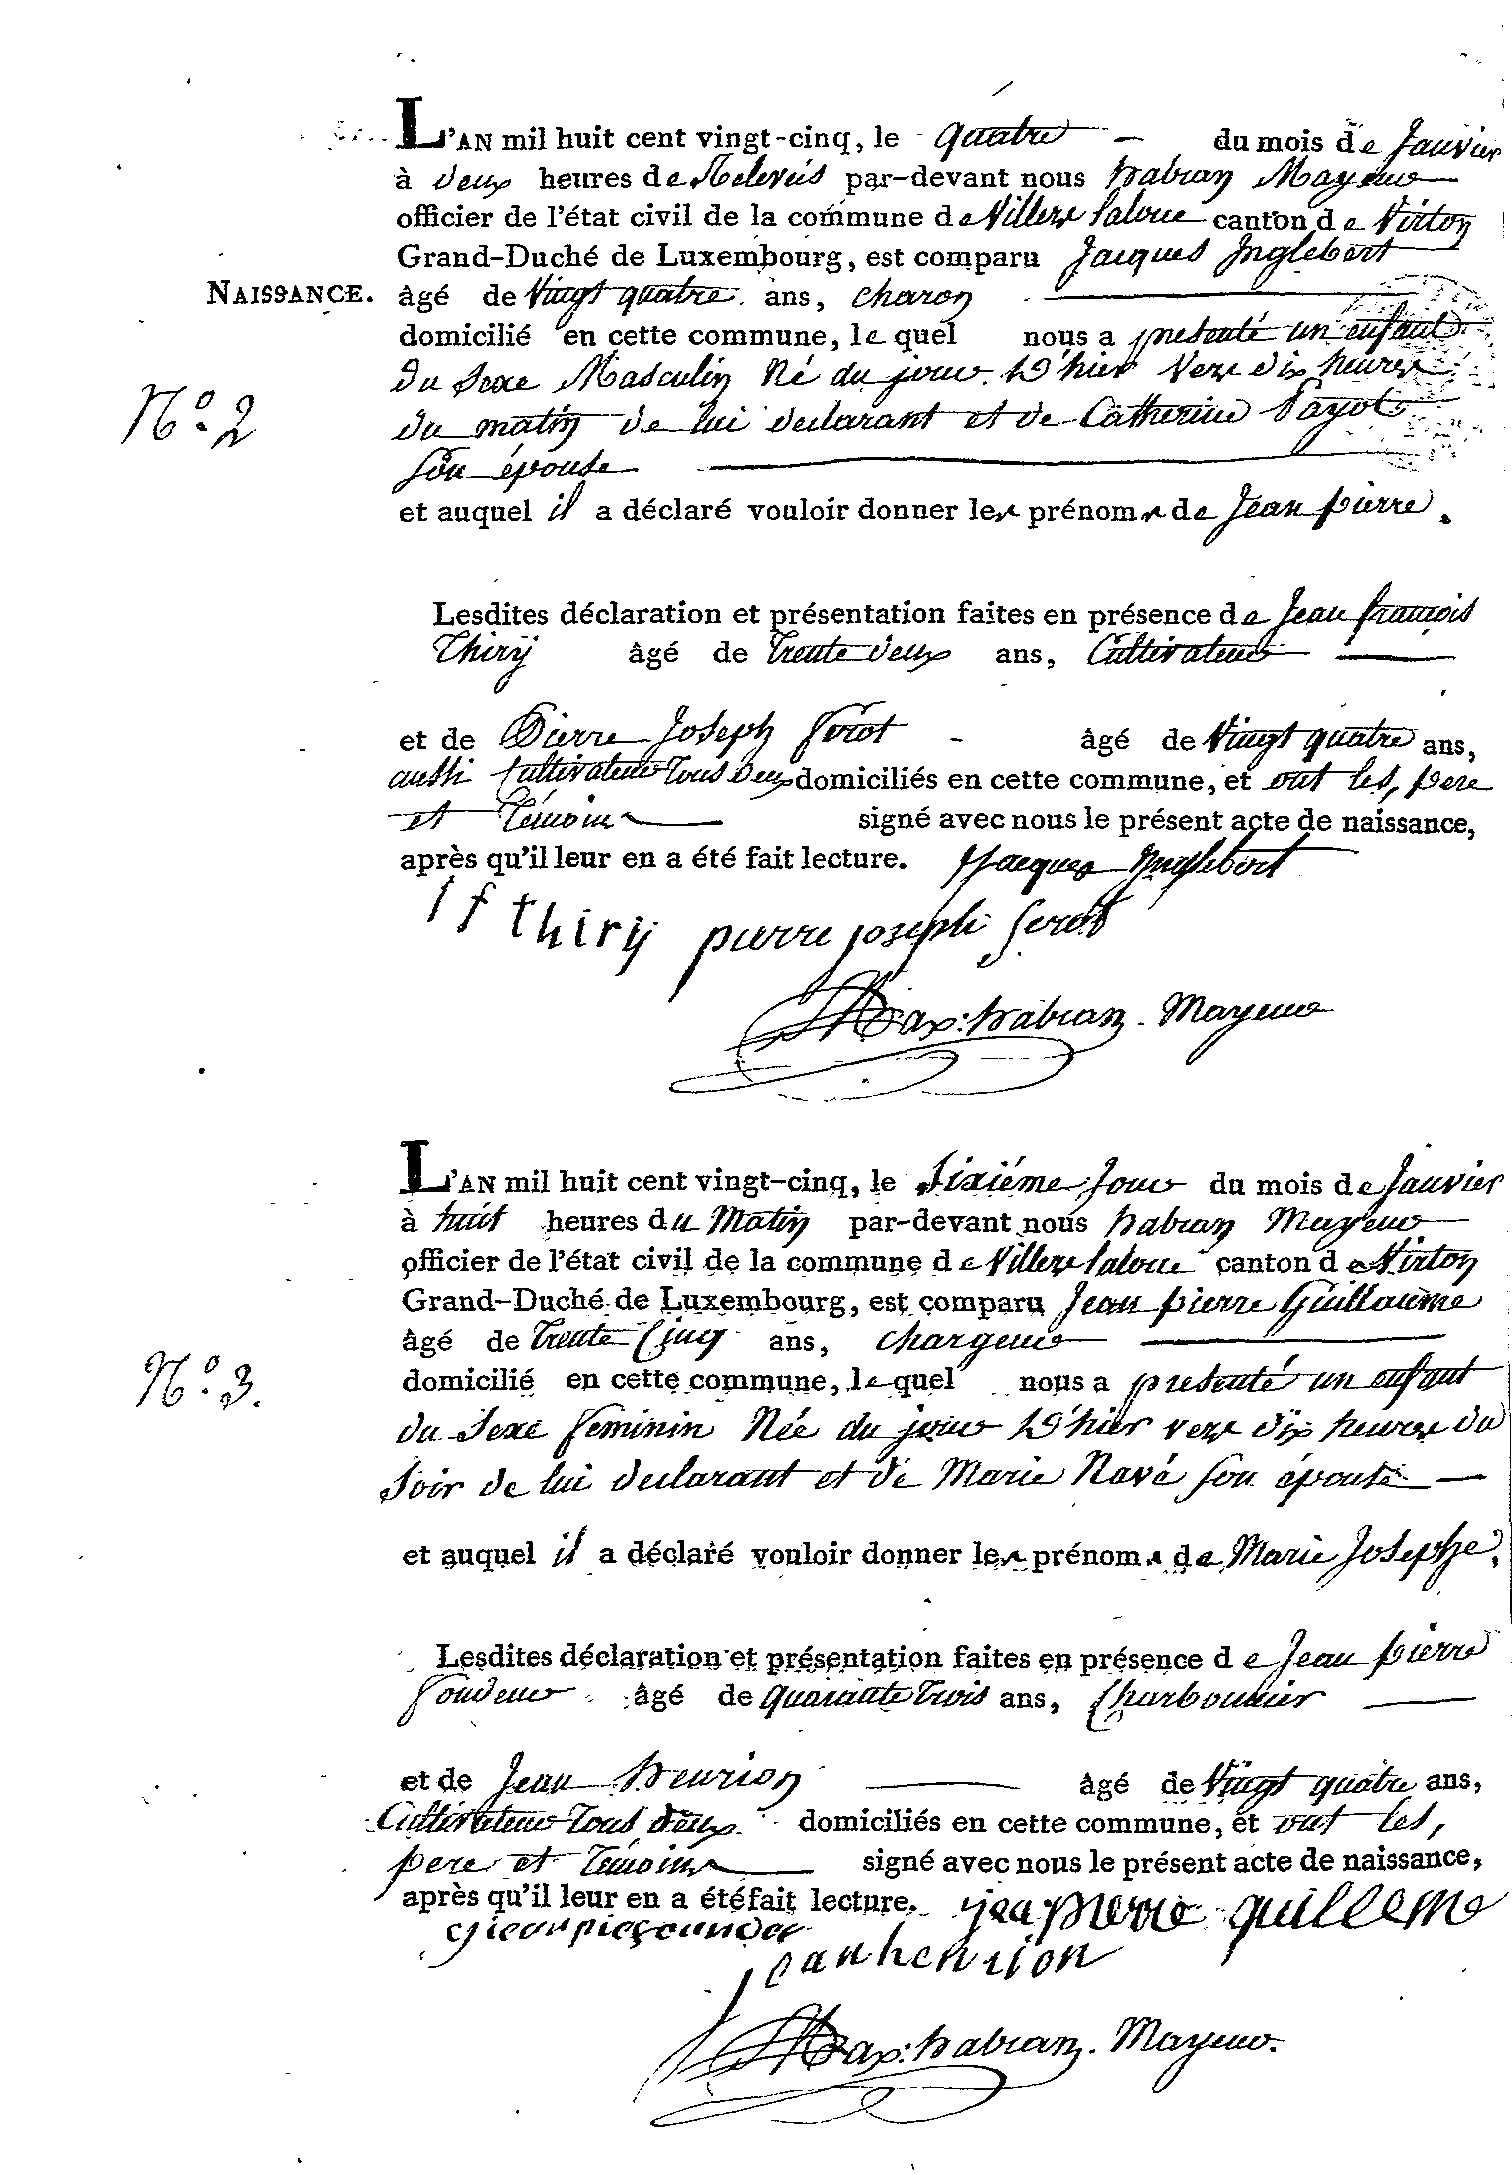 L'AN mil huit cent vingt-cinq, le quatre du mois de Janvier
à deux heures de Relevés par-devant nous habran Mayeur
officier de l'état civil de la commune de Villers Laloue canton de Virton
Grand-Duché de Luxembourg, est comparu Jacques Inglebert
NAISSANCE. âgé de Vingt quatre ans, charon
domicilié en cette commune, le quel nous a presenté un enfant
du Sexe Masculin Né du jour D'hier Vers dix heures
N.o 2
du matin de lui declarant et de Catherine Payot
Son épouse
et auquel il a déclaré vouloir donner les prénoms de Jean pierre.
Lesdites déclaration et présentation faites en présence de Jean françois
Thirÿ âgé de Trente deux ans, Cultivateur
et de Pierre Joseph âgé de Vingt quatre ans,
aussi Cultivateur Tous deux domiciliés en cette commune, et ont les, pere
et Témoins signé avec nous le présent acte de naissance,
après qu'il leur en a été fait lecture. Jacques Inglebert
J f thirÿ pierre joseph
habran. Mayeur
L'AN mil huit cent vingt-cinq, le Sixiéme Jour du mois de Janvier
à huit heures du Matin par-devant nous habran Mayeur
officier de l'état civil de la commune de Villers Laloue canton de Virton
Grand-Duché de Luxembourg, est comparu Jean pierre Guillaume
âgé de Trente Cinq ans, chargeur
N.o 3.
domicilié en cette commune, le quel nous a presenté un enfant
du Sexe feminin Née du jour D'hier vers dix heures du
Soir de lui declarant et de Marie Navé Son épouse
et auquel il a déclaré vouloir donner les prénoms de Marie Josephe,
Lesdites déclaration et présentation faites en présence de Jean pierre
Gondeur âgé de quarante Trois ans, Charbonnier
et de Jean henrion âgé de Vingt quatre ans,
Cultivateur Tous deux domiciliés en cette commune, et ont les,
pere et Témoins signé avec nous le présent acte de naissance,
après qu'il leur en a été fait lecture. jea pierre guilleme
jean henrion
habran. Mayeur.